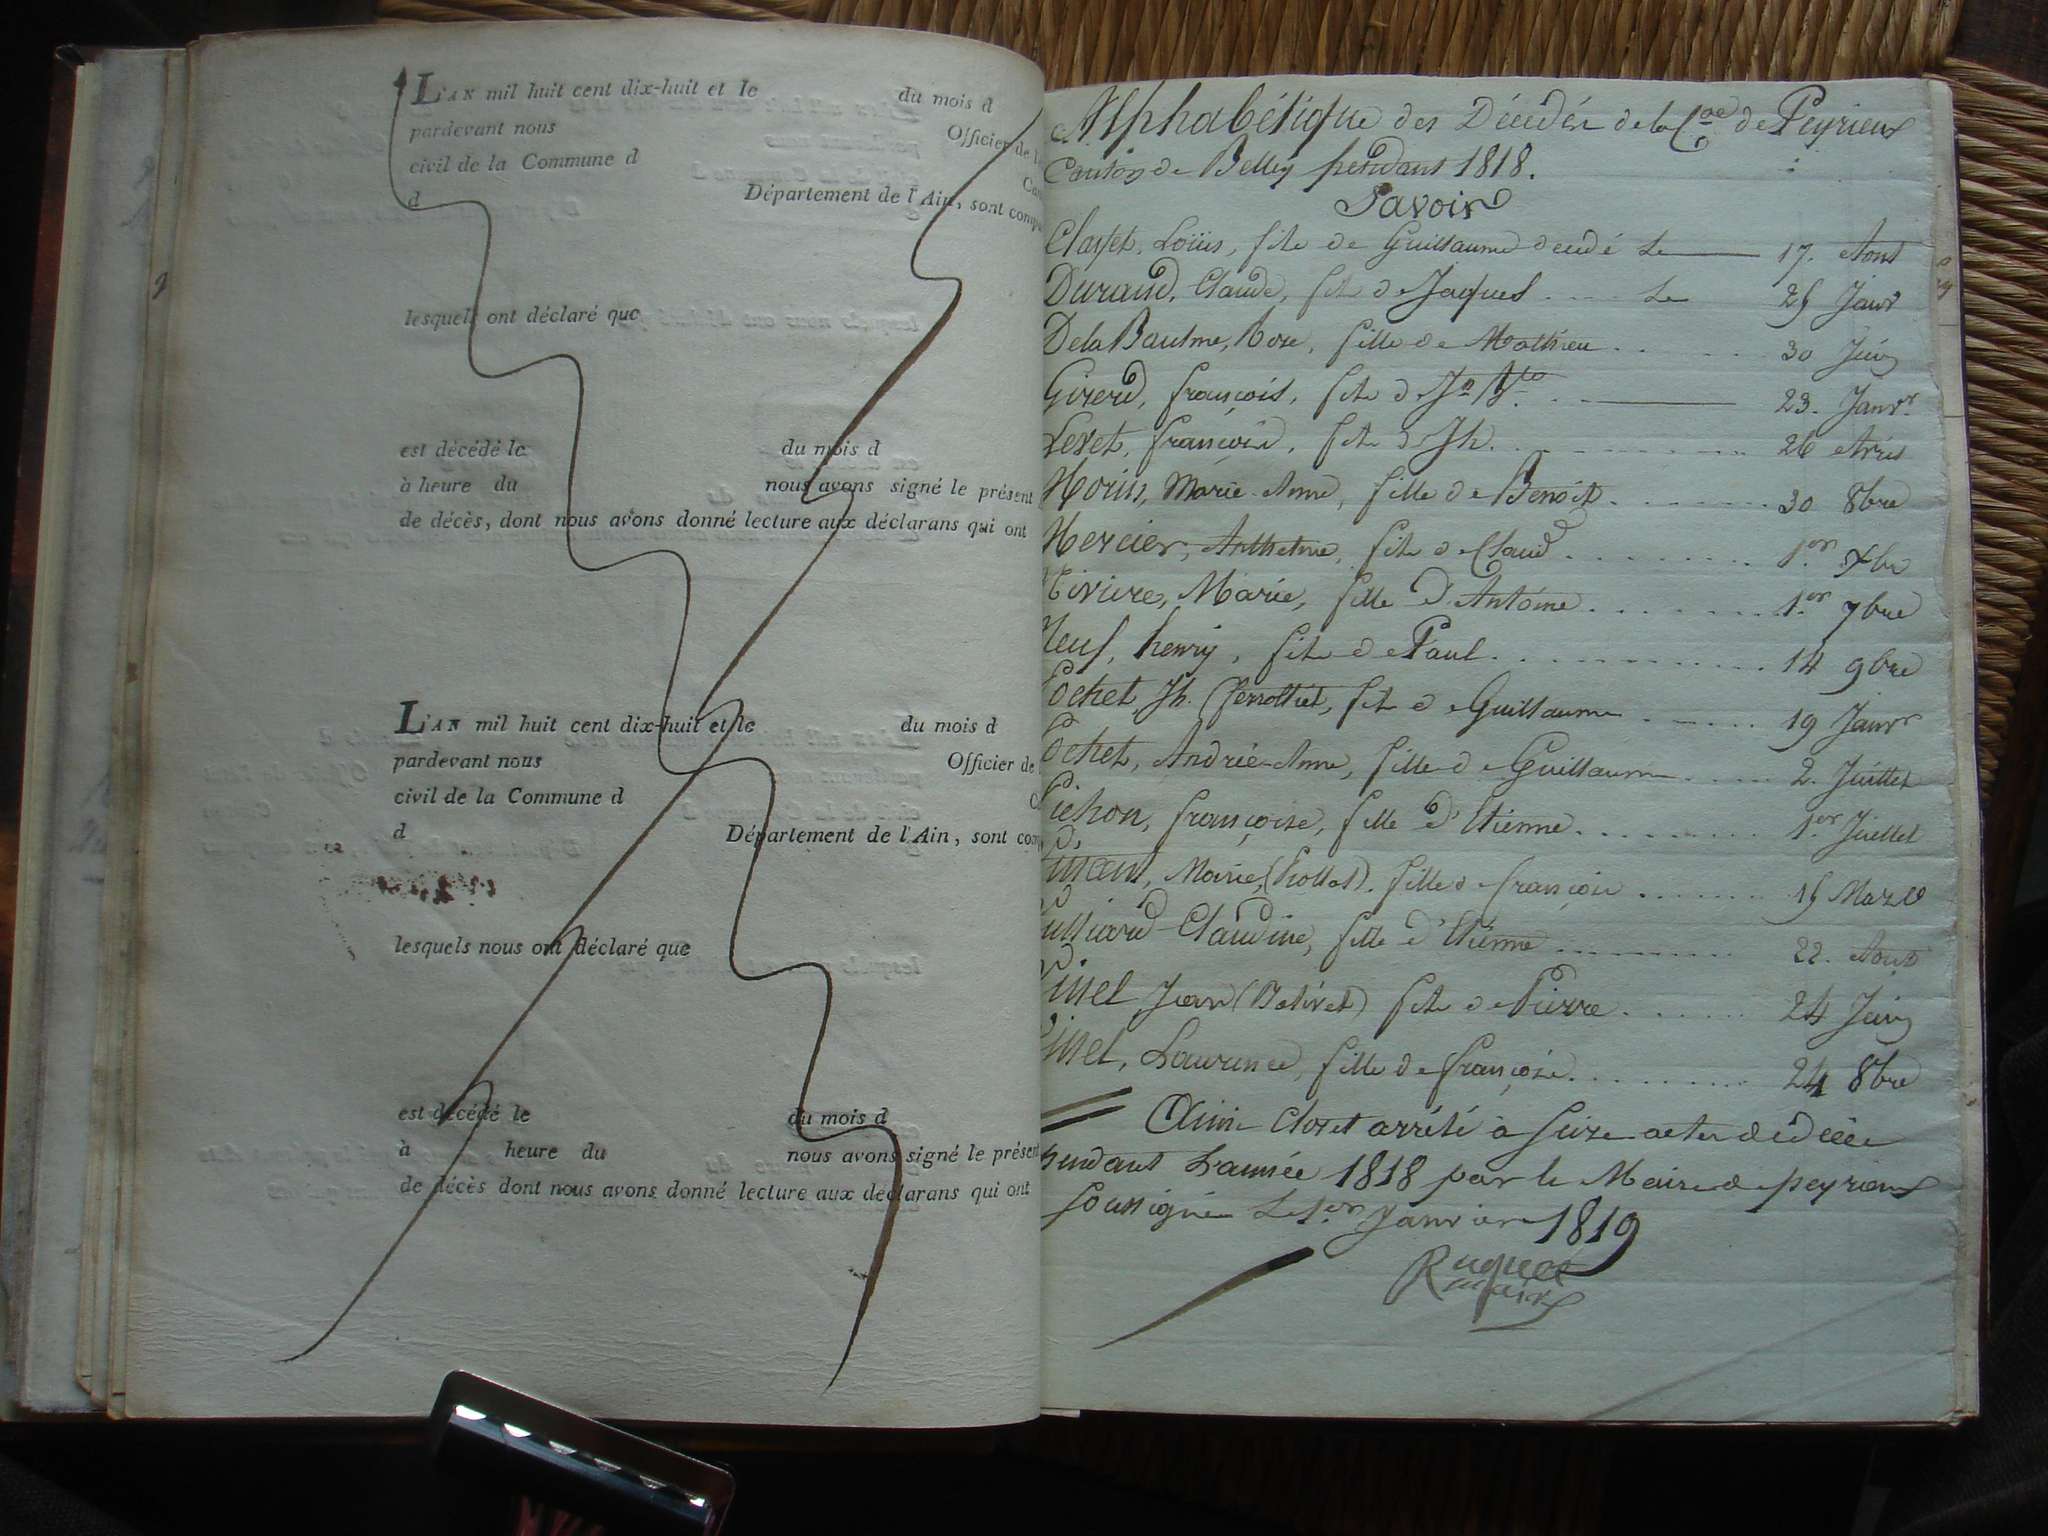 L'AN mil huit cent dix-huit et le du mois d
pardevant nous Officier de l
civil de la Commune d
d Département de l'Ain, sont comp
lesquels ont déclaré que
est décédé le du mois d
à heure du nous avons signé le présent
de décès, dont nous avons donné lecture aux déclarans qui ont
L'AN mil huit cent dix-huit et le du mois d
pardevant nous Officier de
civil de la Commune d
d Département de l'Ain, sont com
lesquels nous ont déclaré que
est décédé le du mois d
à heure du nous avons signé le présen
de décès dont nous avons donné lecture aux déclarans qui ont
Alphabétique des Décédés de la Cne de Peyrieux
Canton de Belley pendant 1818.
Savoir
Louis, fils de Guillaume décédé Le 17. Aout
Durand, Claude, fils de Jaques Le 25 Janvr
Rose, fille de Mathieu 30 Juin
Girerd, françois, fils de 23. Janvr
françois, fils de Jh. 26 Avril
Marie-Anne, fille de Benoit 30 8bre
Mercier, Anthelme, fils de Claude 1.er
Marie, fille d'Antoine 1.er 7bre
henry, fils de Paul 14 9bre
ochet Jh. fils de Guillaume 19 Janvr
ochet, Andrée-Anne, fille de Guillaume 2. Juillet
ichon, françoise, fille d'Etienne 1.er Juillet
Marie, fille de françois 15 Mars
Claudine, fille d'Etienne 22. Aout
Jean fils de Pierre 24 Juin
Laurence, fille de françois 24 8bre
Ainsi Clos et arrêté à seize actes de décès
pendant L'année 1818 par le Maire de peyrieux
soussigné Le 1.er Janvier 1819
maire